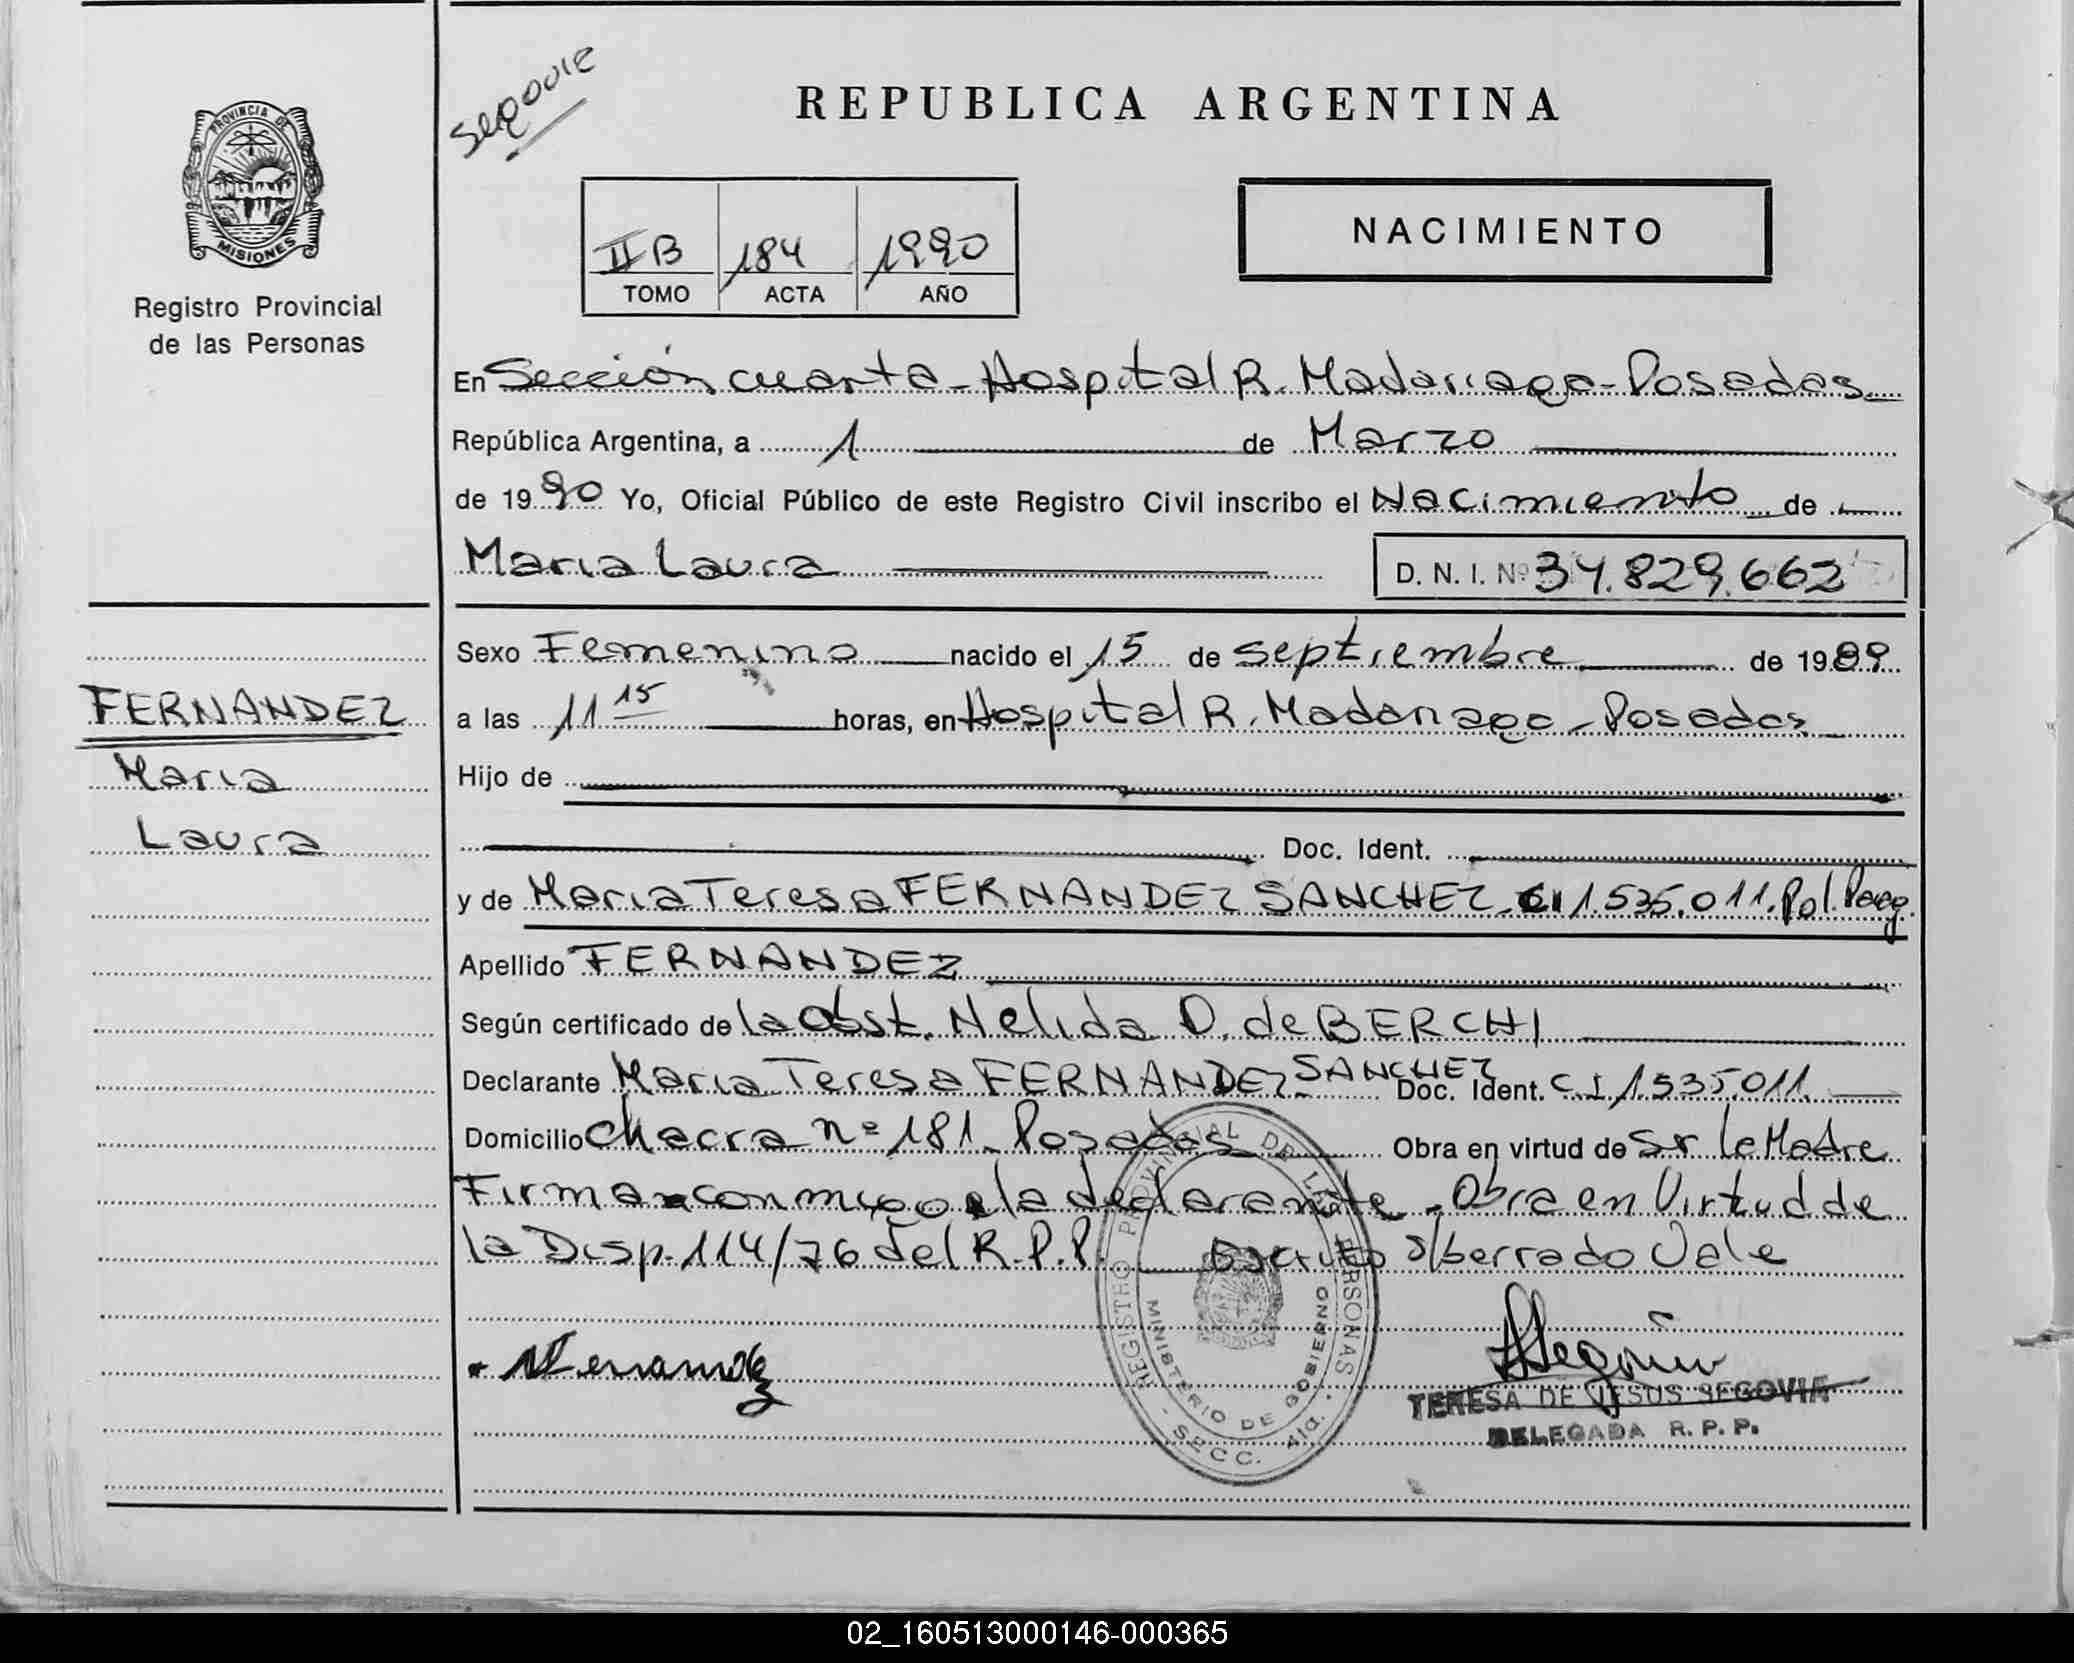 Segovia
REPUBLICA ARGENTINA
PROVINCIA DE
MISIONES
Registro Provincial
de las Personas
II B 184 1990
TOMO ACTA AÑO
NACIMIENTO
En Sección cuarta - Hospital R. Madariaga - Posadas
República Argentina, a 1 de Marzo
de 1990 Yo, Oficial Público de este Registro Civil inscribo el Nacimiento de
Maria Laura D. N. I. Nº 34.829.662
FERNANDEZ
Maria
Laura
Sexo Femenino nacido el 15 de septiembre de 1989
a las 11 15 horas, en Hospital R. Madariaga - Posadas
Hijo de
Doc. Ident.
y de Maria Teresa FERNANDEZ SANCHEZ CI 1.535.011. Pol. Parag.
Apellido FERNANDEZ
Según certificado de la Obst. Nelida O. de BERCHI
Declarante Maria Teresa FERNANDEZ SANCHEZ Doc. Ident. C.I 1.535.011.
Domicilio Chacra nº 181 - Posadas Obra en virtud de Sr la Madre
Firma con migo la declarante - Obra en Virtud de
la Disp. 114/76 del R.P.P. Escrito s/berrado Vale
REGISTRO PROVINCIAL DE LAS PERSONAS
MINISTERIO DE GOBIERNO
SECC. 4ta.
TERESA DE JESUS SEGOVIA
DELEGADA R. P. P.
02_160513000146-000365